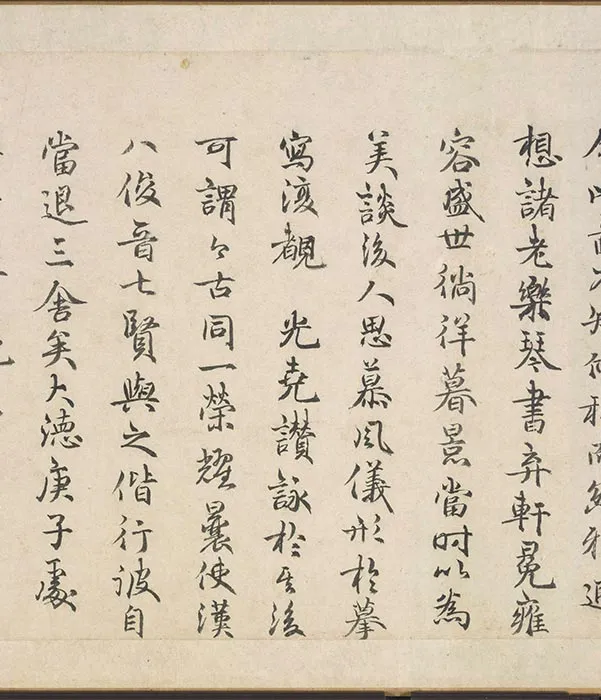 想諸老樂琴書弃軒冕雍
容盛世徜徉暮景當時以為
美談後人思慕風儀形於摹
寫復覩 光堯讃詠於其後
可謂今古同一榮耀曩使漢
八俊晉七賢與之偕行彼自
當退三舍矣大德庚子處